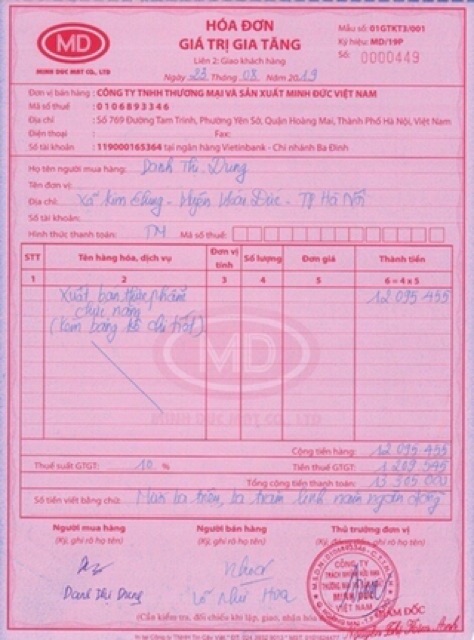 MD
MINH DUC MAT CO., LTD
HÓA ĐƠN
GIÁ TRỊ GIA TĂNG
Liên 2: Giao khách hàng
Ngày 23 Tháng 08 Năm 2019
Mẫu số: 01GTKT3/001
Ký hiệu: MD/19P
Số: 0000449
Đơn vị bán hàng: CÔNG TY TNHH THƯƠNG MẠI VÀ SẢN XUẤT MINH ĐỨC VIỆT NAM
Mã số thuế : 0106893346
Địa chỉ : Số 769 Đường Tam Trinh, Phường Yên Sở, Quận Hoàng Mai, Thành Phố Hà Nội, Việt Nam
Điện thoại : Fax:
Số tài khoản : 119000165364 tại ngân hàng Vietinbank - Chi nhánh Ba Đình
Họ tên người mua hàng: Danh Thị Dung
Tên đơn vị:
Địa chỉ: Xã Kim Chung - Huyện Hoài Đức - TP Hà Nội
Số tài khoản:
Hình thức thanh toán: TM Mã số thuế:
STT Tên hàng hóa, dịch vụ Đơn vị tính Số lượng Đơn giá Thành tiền
1 2 3 4 5 6 = 4 x 5
Xuất bán thực phẩm 12 095 455
chức năng
(kèm bảng kê chi tiết)
MD
MINH DUC MAT CO., LTD
Cộng tiền hàng: 12 095 455
Thuế suất GTGT: 10 % Tiền thuế GTGT: 1 209 545
Tổng cộng tiền thanh toán: 13 305 000
Số tiền viết bằng chữ: Mười ba triệu, ba trăm linh năm nghìn đồng
Người mua hàng Người bán hàng Thủ trưởng đơn vị
(Ký, ghi rõ họ tên) (Ký, ghi rõ họ tên) (Ký, ghi rõ họ tên)
CÔNG TY
MINH ĐỨC
VIỆT NAM
GIÁM ĐỐC
Danh Thị Dung Như Hoa
(Cần kiểm tra, đối chiếu khi lập, giao, nhận hóa